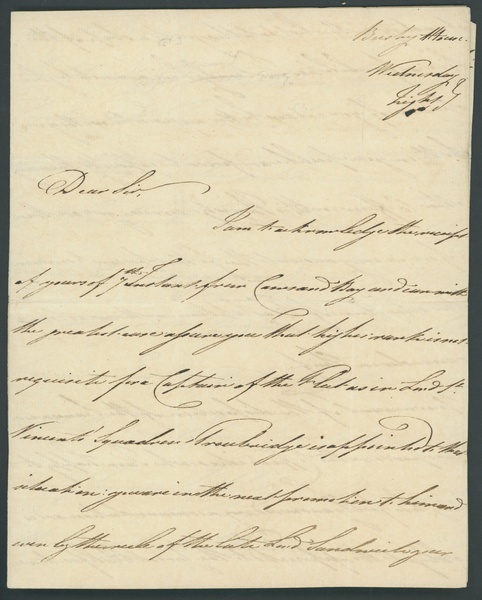 Bushy House
Wednesday
night
Dear Sir,
I am to acknowledge the receipt
of yours of 7th Instant from Cawsand Bay and can with
the greatest ease assure you that higher rank is not
requisite for a Captain of the Fleet as in Lord St.
Vincent's Squadron Troubridge is appointed to that
situation: you are in the next promotion to him and
even by the rule of the late Lord Sandwich your